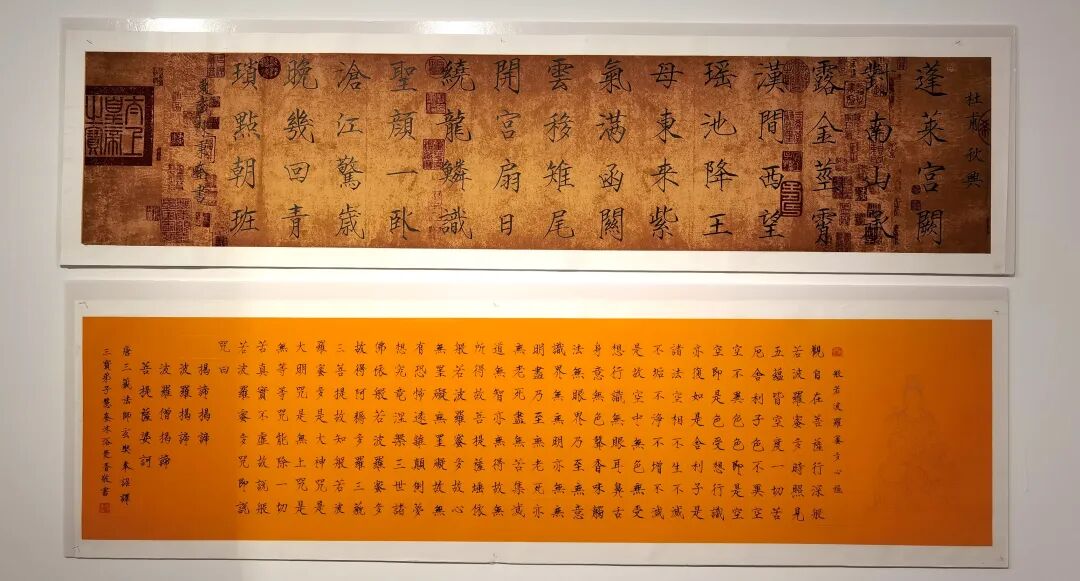 杜甫秋興
蓬萊宮闕
對南山承
露金莖霄
漢間西望
瑶池降王
母東來紫
氣满函關
雲移雉尾
開宮扇日
繞龍鱗識
聖顔一卧
滄江驚歳
晚幾回青
瑣點朝班
書
般若波羅蜜多心經
觀自在菩薩行深般
若波羅蜜多時照見
五蘊皆空度一切苦
厄舍利子色不異空
空不異色色即是空
空即是色受想行識
亦復如是舍利子是
諸法空相不生不滅
不垢不淨不增不減
是故空中無色無受
想行識無眼耳鼻舌
身意無色聲香味觸
法無眼界乃至無意
識界無無明亦無無
明盡乃至無老死亦
無老死盡無苦集滅
道無智亦無得以無
所得故菩提薩埵依
般若波羅蜜多故心
無罣礙無罣礙故無
有恐怖遠離顛倒夢
想究竟涅槃三世諸
佛依般若波羅蜜多
故得阿耨多羅三藐
三菩提故知般若波
羅蜜多是大神咒是
大明咒是無上咒是
無等等咒能除一切
苦真實不虛故說般
若波羅蜜多咒即說
咒曰
揭諦揭諦
波羅揭諦
波羅僧揭諦
菩提薩婆訶
唐三藏法師玄奘奉詔譯
三寶弟子慧春沐浴焚香敬書